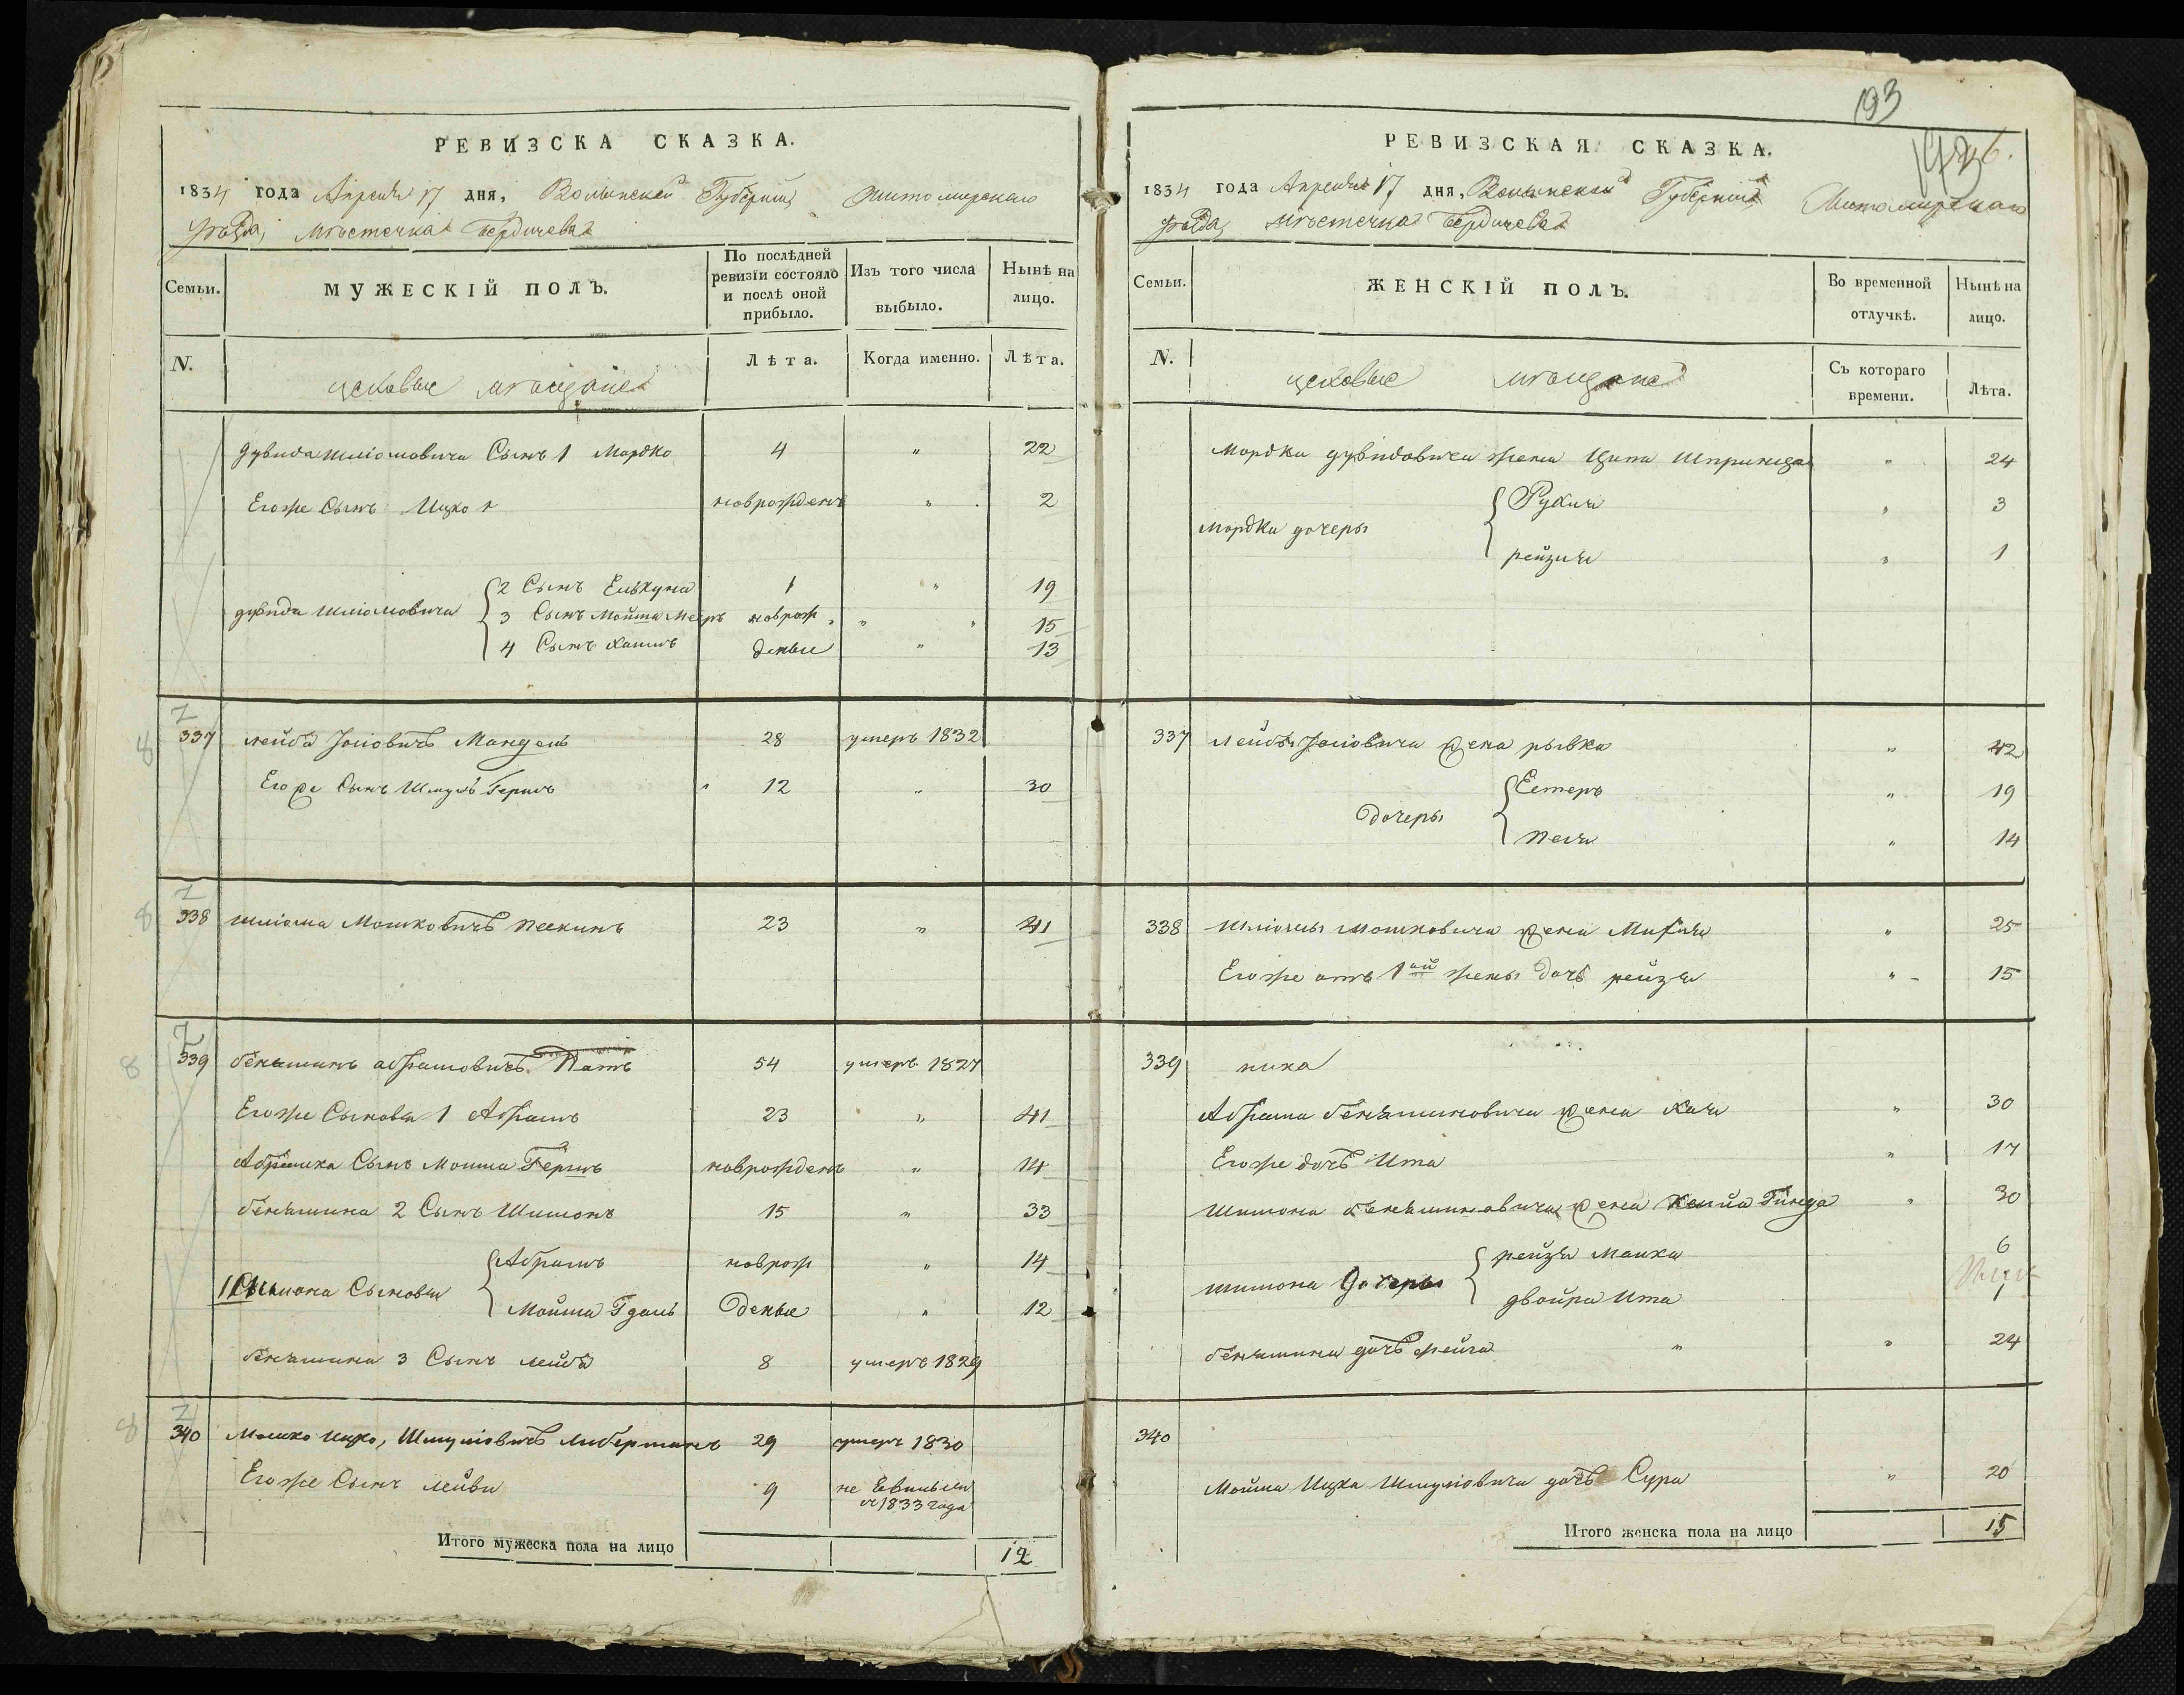 193
РЕВИЗСКА СКАЗКА.
1834 года Апреля 17 дня, Волынской Губернии Житомирскаго
уѣзда, мѣстечка Бердичева
Семьи.
МУЖЕСКІЙ ПОЛЪ.
По послѣдней ревизіи состояло и послѣ оной прибыло.
Изъ того числа выбыло.
Нынѣ на лицо.
N.
цеховые мѣщане
Лѣта.
Когда именно.
Лѣта.
Дувида Шліомовича Сынъ 1 Мордко 4 " 22
Егоже Сынъ Ицко новрожденъ " 2
дувида Шліомовича
2 Сынъ Елькуна 1 " 19
3 Сынъ Мойша Меер новрож " 15
4 Сынъ Хаимъ деные " 13
337 Лейба Іосіовичъ Мандель 28 умеръ 1832
Егоже Сынъ Шмуль Гершъ 12 " 30
338 Шліома Мошковичъ Пескинъ 23 " 41
339 бенямин абрамовичъ Патъ 54 умеръ 1827
Егоже Сыновья 1 Абрамъ 23 " 41
Абрамка Сынъ Мошка Гершъ новрожденъ " 14
бенямина 2 Сынъ Шимонъ 15 " 33
Шимона Сыновья
Абрамъ новрож " 14
Мойша Гдаль деные " 12
бенямина 3 Сынъ Лейба 8 умеръ 1829
340 Мошко Ицко, Шмуліовичъ Либерманъ 29 умеръ 1830
Егоже Сынъ Лейви 9 не Евильси
1833 года
Итого мужеска пола на лицо 12
РЕВИЗСКАЯ СКАЗКА.
1834 года Апреля 17 дня, Волынской Губерніи Житомирскаго
уѣзда, мѣстечка Бердичева
Семьи.
ЖЕНСКІЙ ПОЛЪ.
Во временной отлучкѣ.
Нынѣ на лицо.
N.
цеховые мѣщане
Съ котораго времени.
Лѣта.
Мордка дувидовича жена Ципа Шпринца " 24
Мордка дочеры
Рухля " 3
рейзя " 1
337 Лейбы Іосіовича жена рывка " 42
Дочеры
Естеръ " 19
Песя " 14
338 Шліомы Мошковича жена Миря " 25
Егоже отъ 1ой жены дочь рейзя " 15
339 ника
Абрама беняминовича жена Хая " 30
Егоже дочь Ита " 17
Шимона беняминовича жена Хайа Гинда " 30
Шимона дочеры
рейзя Малка 6
двойра Ита 1
бенямина дочь фейга " 24
340
Мойша Ицка Шмуліовича дочь Сура " 20
Итого женска пола на лицо 15